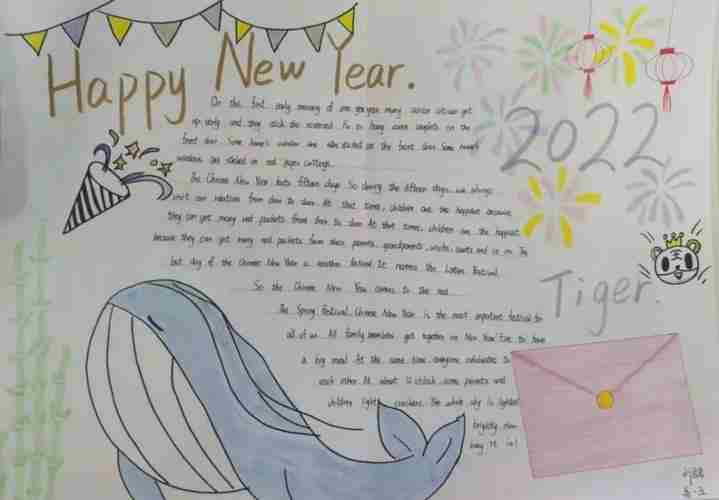 Happy New Year.
2022
On the first early morning of one new year many
up early and they stick the reversed Fu or hang some couplets on the
front door. Some house's windows are also sticked on the front door. Some house's
windows are sticked on red paper cuttings.
The Chinese New Year lasts fifteen days. So during the fifteen days, we always
visit our relatives from door to door. At that time, children are the happiest because
they can get many red packets from door to door. At that time, children are the happiest
because they can get many red packets from their parents, grandparents, uncles, aunts and so on. The
last day of the Chinese New Year is another festival. It names the Latern Festival.
So the Chinese New Year comes to the end.
Tiger.
The Spring Festival, Chinese New Year, is the most important festival for
all of us. All family members get together on New Year' Eve to have
a big meal. At the same time, everyone celebrates to
each other. At about 12 o'clock, some parents and
children light crackers. The whole sky is lighted
brightly. How
busy it is!